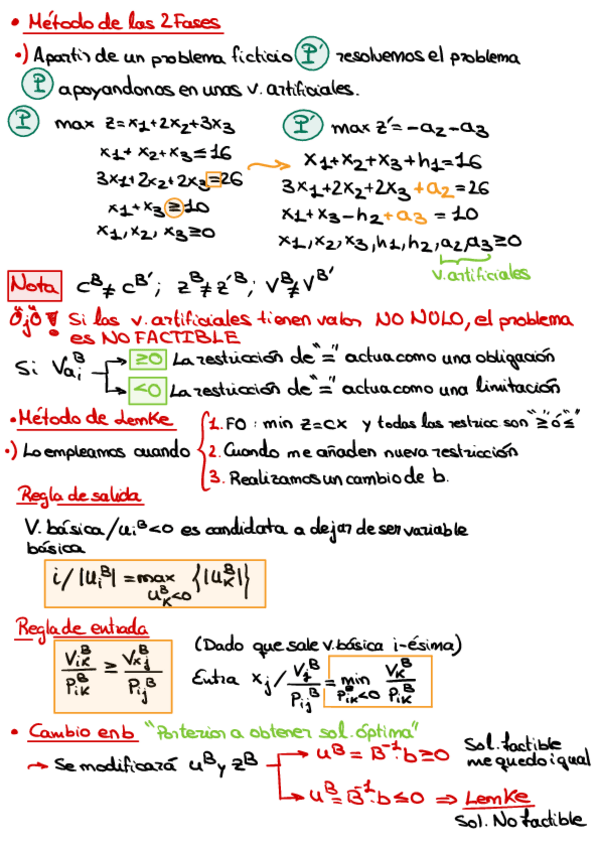 • Método de las 2 Fases
•) A partir de un problema ficticio P' resolvemos el problema
P apoyandonos en unas v. artificiales.
P max z=x1+2x2+3x3
x1+x2+x3≤16
3x1+2x2+2x3=26
x1+x3≥10
x1,x2,x3≥0
P' max z'=-a2-a3
x1+x2+x3+h1=16
3x1+2x2+2x3+a2=26
x1+x3-h2+a3=10
x1,x2,x3,h1,h2,a2,a3≥0
v.artificiales
Nota c^B≠c^B'; z^B≠z'^B; V^B≠V^B'
OJO! Si las v. artificiales tienen valor NO NULO, el problema
es NO FACTIBLE
Si Va_i^B → ≥0 La restricción de "=" actua como una obligación
→ <0 La restricción de "=" actua como una limitación
• Método de Lemke
•) Lo empleamos cuando
1. FO: min z=cx y todas las restricc son "≥" ó "≤"
2. Cuando me añaden nueva restricción
3. Realizamos un cambio de b.
Regla de salida
V. básica/u_i^B<0 es candidata a dejar de ser variable
básica
i/|u_i^B|=max_{u_K^B<0} {|u_K^B|}
Regla de entrada
V_iK^B/P_iK^B ≥ V_xj^B/P_ij^B
(Dado que sale v.básica i-ésima)
Entra x_j/ V_j^B/P_ij^B = min_{P_iK^B<0} V_K^B/P_iK^B
• Cambio en b "Posterior a obtener sol. óptima"
→ Se modificará u^B y z^B
→ u^B=B^-1·b≥0 Sol. factible
me quedo igual
→ u^B=B^-1·b≤0 ⇒ Lemke
Sol. No factible